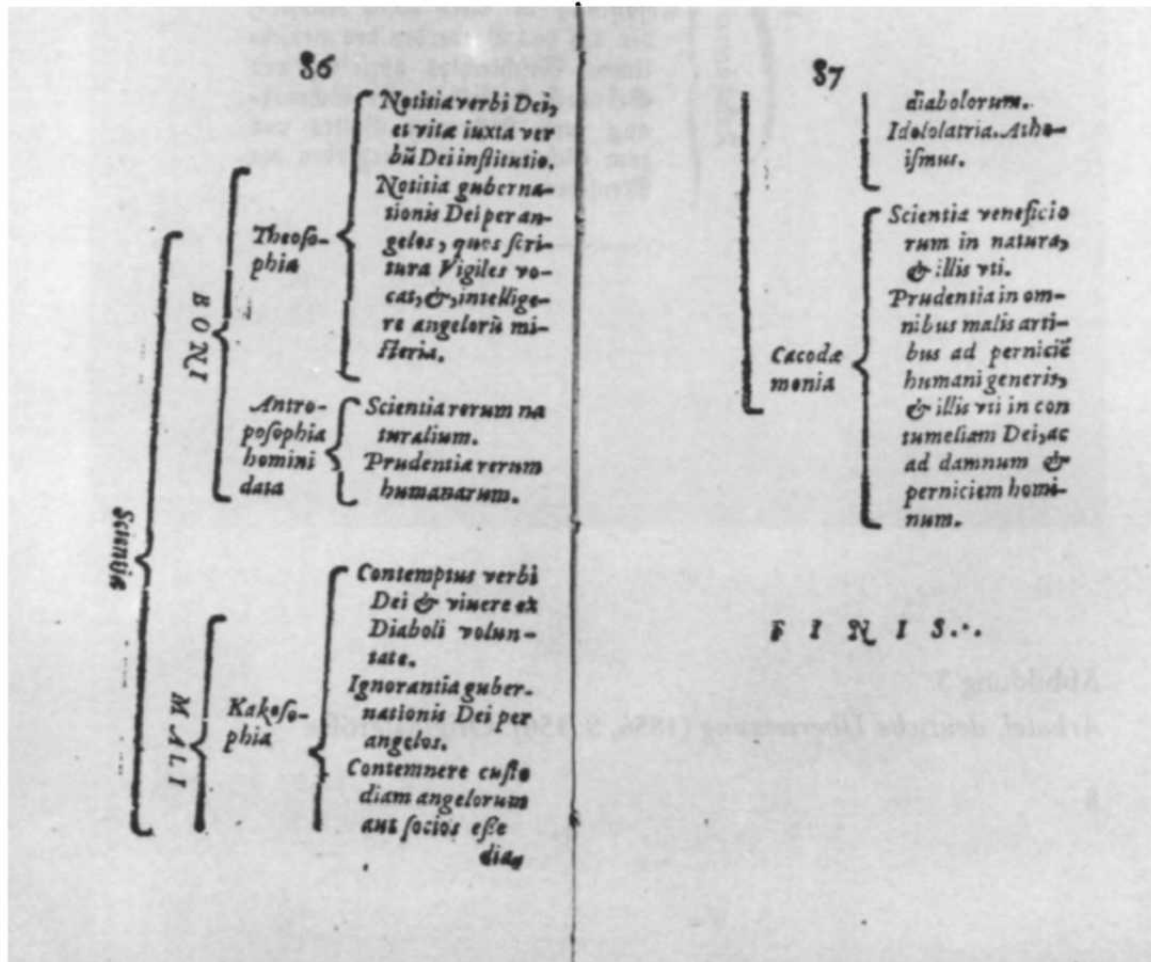 86
Notitia verbi Dei,
et vitæ iuxta ver
bũ Dei institutio.
Notitia guberna-
tionis Dei per an-
gelos, quos scri-
tura Vigiles vo-
cat, &, intellige-
re angelorũ mi-
steria.
Theoso-
phia
BONI
Antro-
posophia
homini
data
Scientia rerum na
turalium.
Prudentia rerum
humanarum.
Scientia
MALI
Kakoso-
phia
Contemptus verbi
Dei & viuere ex
Diaboli volun-
tate.
Ignorantia guber-
nationis Dei per
angelos.
Contemnere custo
diam angelorum
aut socios eße
dia,
87
diabolorum.
Idololatria. Athe-
ismus.
Cacodæ
monia
Scientia veneficio
rum in natura,
& illis vti.
Prudentia in om-
nibus malis arti-
bus ad perniciẽ
humani generis,
& illis vti in con
tumeliam Dei, ac
ad damnum &
perniciem homi-
num.
FINIS.·.
Abbildung 3
Arbatel, deutsche Übersetzung (1856, S.
8